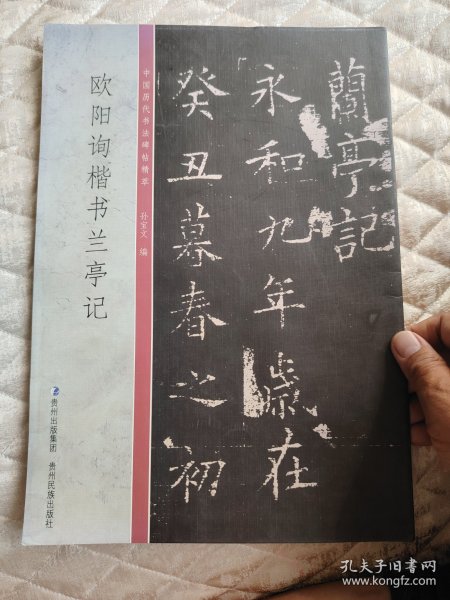 欧阳询楷书兰亭记
贵州出版集团 贵州民族出版社
中国历代书法碑帖精萃 孙宝文 编
蘭亭記
永和九年歲在
癸丑暮春之初
孔夫子旧书网
www.kongfz.com